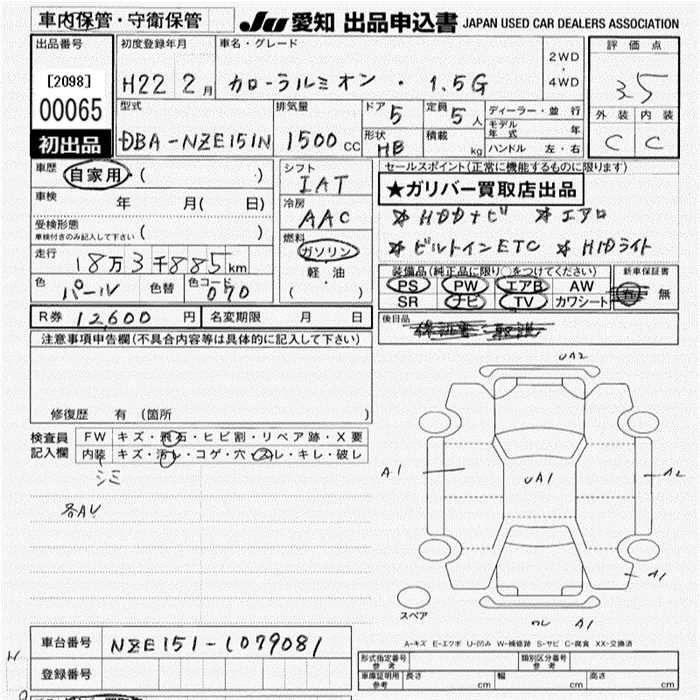 車内保管・守衛保管
JU 愛知 出品申込書 JAPAN USED CAR DEALERS ASSOCIATION
出品番号
[2098]
00065
初出品
初度登録年月
H22 2月
車名・グレード
カローラルミオン・1.5G
2WD
・
4WD
評価点
3.5
外装 内装
C C
型式
DBA-NZE151N
排気量
1500CC
ドア
5
定員
5人
形状
HB
積載
kg
ディーラー・並行
モデル年式 年
ハンドル 左・右
車歴
自家用・( )
車検 年 月( 日)
受検形態
車検付きのみ記入して下さい ( )
走行
18万3千885km
色
パール
色替
色コード
070
シフト
IAT
冷房
AAC
燃料
ガソリン
軽・油
( )
セールスポイント(正常に機能するものに限ります)
★ガリバー買取店出品
☆HDDナビ ☆エアロ
☆ビルトインETC ☆HIDライト
装備品(純正品に限り○をつけてください)
PS PW エアB AW
SR ナビ TV カワシート
新車保証書
有 無
R券 12,600円
名変期限 月 日
後日品
保証書・取説
注意事項申告欄(不具合内容等は具体的に記入して下さい)
修復歴 有 (箇所 )
検査員
記入欄
FW キズ・飛石・ヒビ割・リペア跡・X要
内装 キズ・汚レ・コゲ・穴・スレ・キレ・破レ
シミ
各AU
UA2
A1
UA1
A2
A1
A1
スペア
A-キズ E-エクボ U-凹み W-補修跡 S-サビ C-腐食 XX-交換済
車台番号
NZE151-1079081
登録番号
形式指定番号
参考
類別区分番号
参考
車庫証明用
参考
長さ 幅 高さ